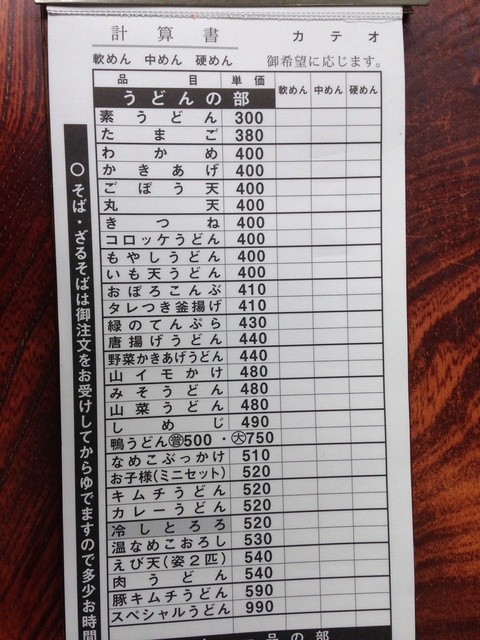 計算書 カテオ
軟めん 中めん 硬めん 御希望に応じます。
品目 単価 軟めん 中めん 硬めん
うどんの部
素うどん 300
たまご 380
わかめ 400
かきあげ 400
ごぼう天 400
丸天 400
きつね 400
コロッケうどん 400
もやしうどん 400
いも天うどん 400
おぼろこんぶ 410
タレつき釜揚げ 410
緑のてんぷら 430
唐揚げうどん 440
野菜かきあげうどん 440
山イモかけ 480
みそうどん 480
山菜うどん 480
しめじ 490
鴨うどん㊥500・㊛750
なめこぶっかけ 510
お子様(ミニセット) 520
キムチうどん 520
カレーうどん 520
冷しとろろ 520
温なめこおろし 530
えび天(姿2匹) 540
肉うどん 540
豚キムチうどん 590
スペシャルうどん 990
品の部
○そば・ざるそばは御注文をお受けしてからゆでますので多少お時間